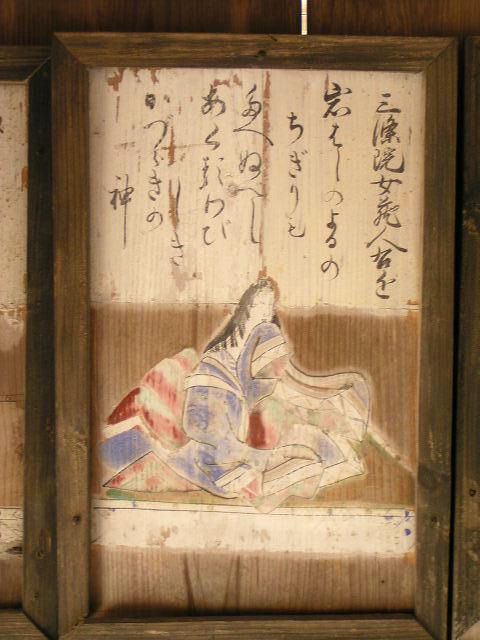 三條院女蔵人左近
岩はしのよるの
ちぎりも
たへぬべし
あくるわび
しき
かづらきの
神